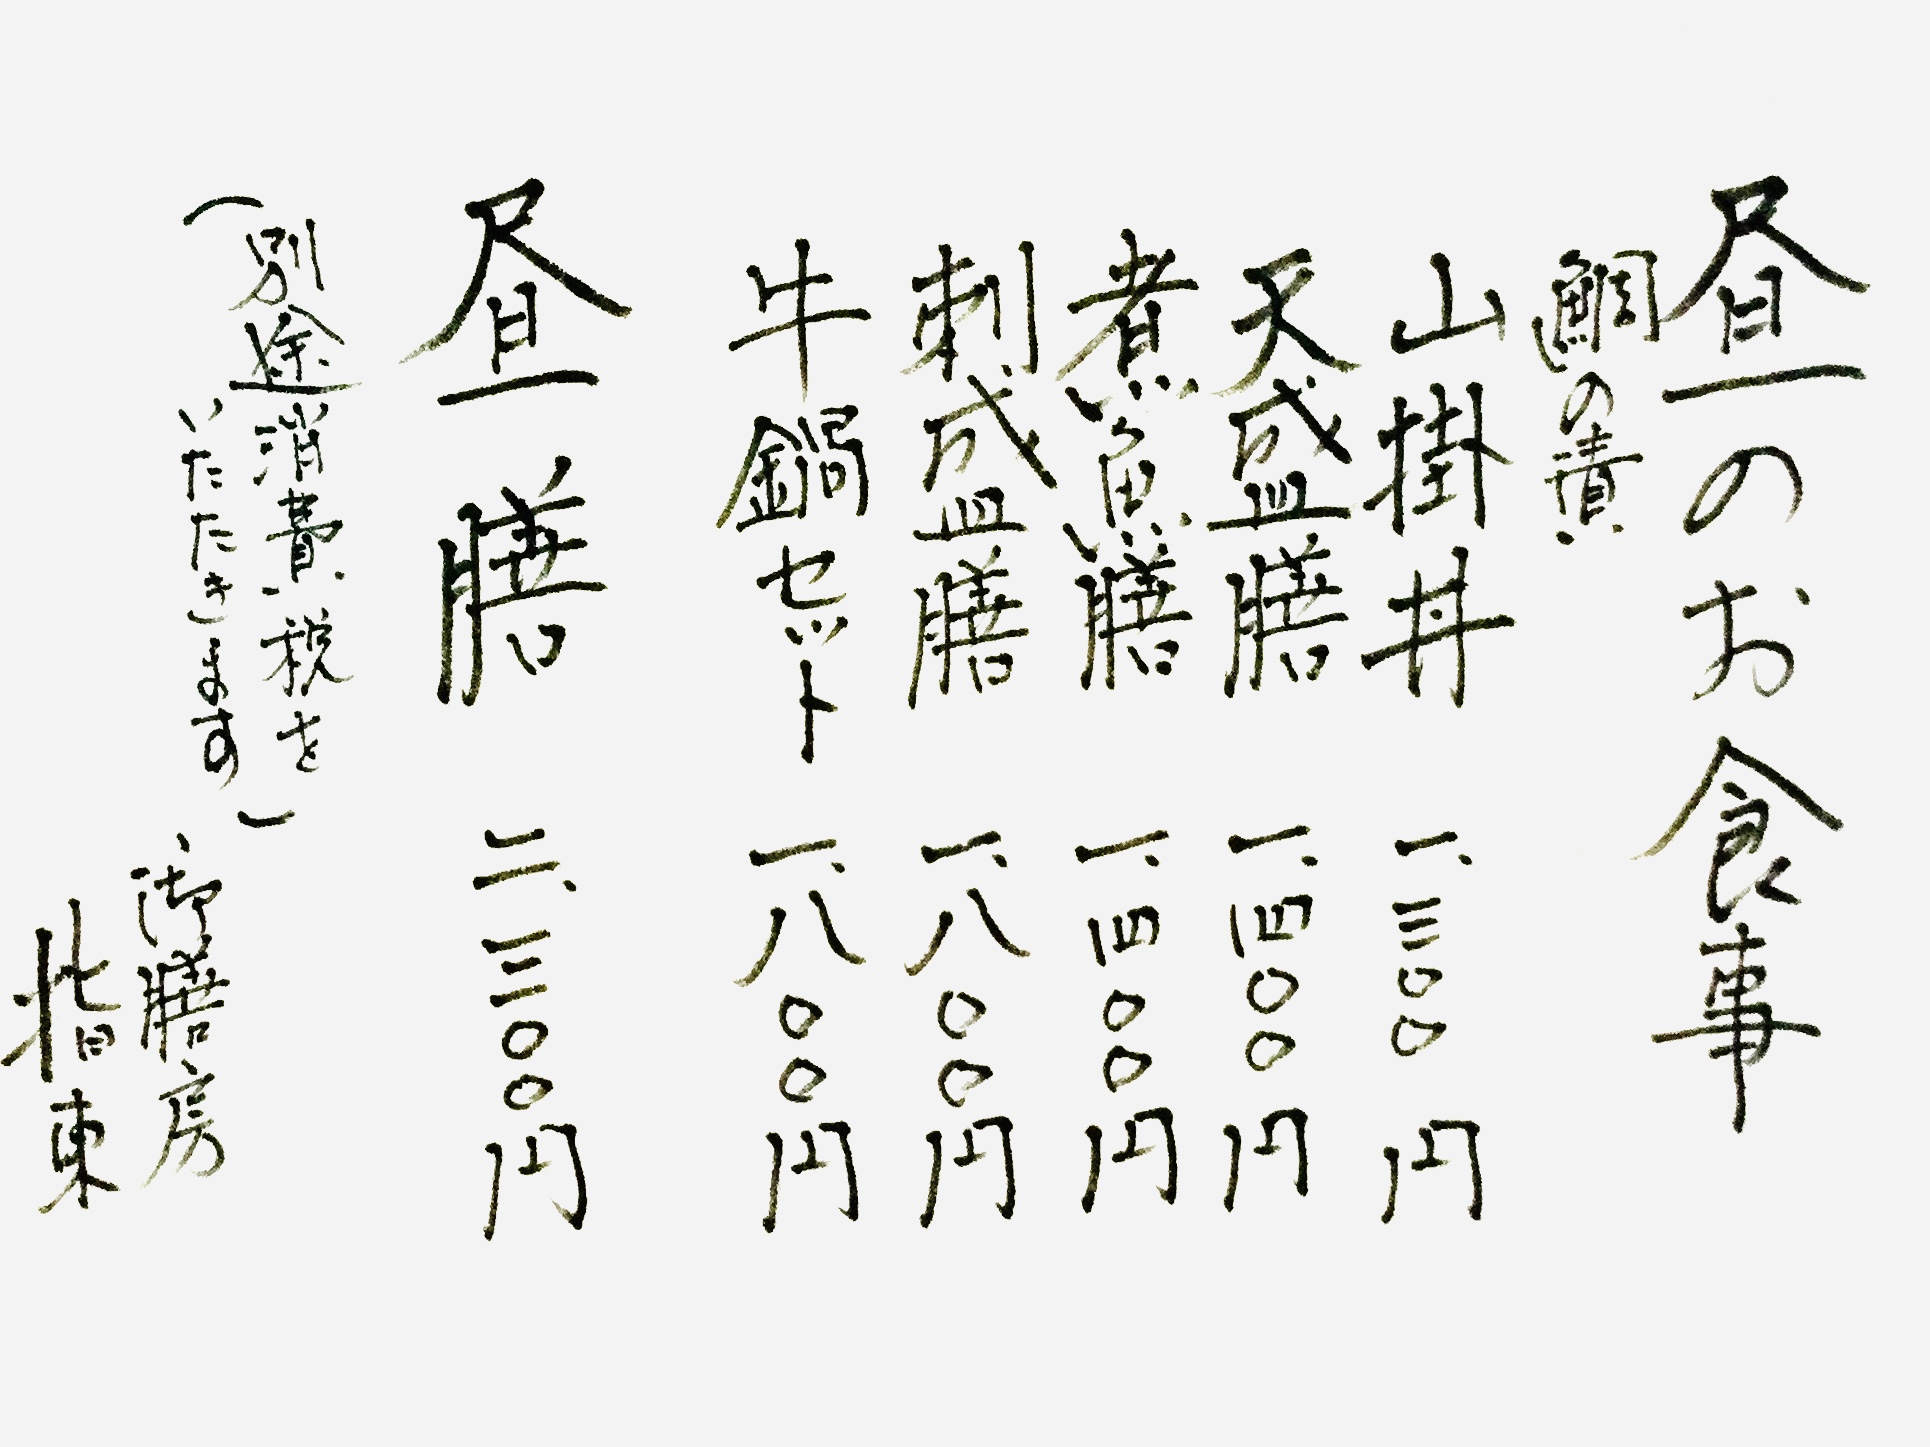 昼のお食事
鯛の漬
山掛丼 一、三〇〇円
天盛膳 一、四〇〇円
煮魚膳 一、四〇〇円
刺盛膳 一、八〇〇円
牛鍋セット 一、八〇〇円
昼膳 二、三〇〇円
（別途消費税を
いたたきます）
御膳房
東